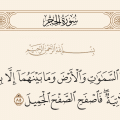 سُورَةُ الحِجْرِ
بِسْمِ اللَّهِ الرَّحْمَٰنِ الرَّحِيمِ
السَّمَٰوَٰتِ وَالْأَرْضَ وَمَا بَيْنَهُمَا إِلَّا
فَاصْفَحِ الصَّفْحَ الْجَمِيلَ ٨٥